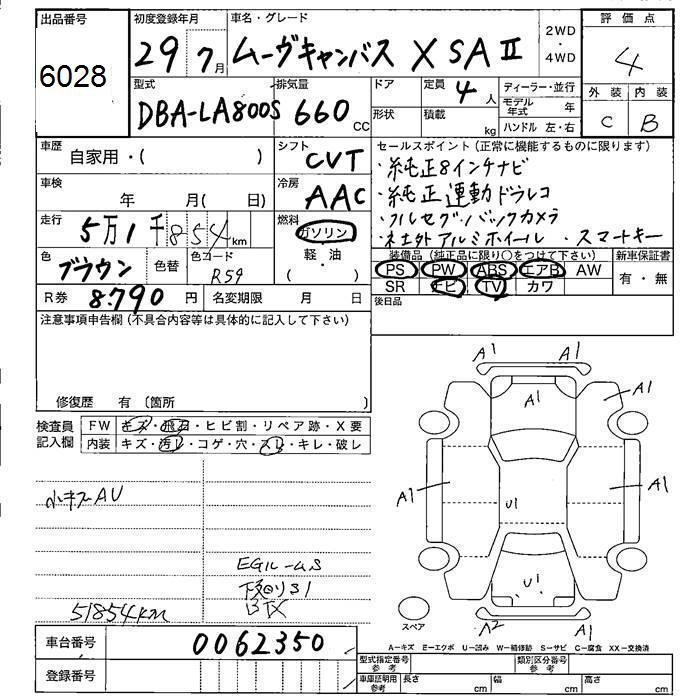 出品番号
6028
初度登録年月
29 7月
車名・グレード
ムーヴキャンバス X SAⅡ
2WD
・
4WD
評価点
4
型式
DBA-LA800S
排気量
660 CC
ドア
形状
定員
4人
積載
kg
ディーラー・並行
モデル年式 年
ハンドル 左・右
外装 内装
C B
車歴
自家用・( )
シフト
CVT
セールスポイント(正常に機能するものに限ります)
・純正8インチナビ
・純正連動ドラレコ
・フルセグ・バックカメラ
・社外アルミホイール ・スマートキー
車検
年 月( 日)
冷房
AAC
走行
5万1千854km
燃料
ガソリン
・
軽・油
( )
色
ブラウン
色替
色コード
R59
装備品(純正品に限り○をつけて下さい)
PS PW ABS エアB AW
SR ナビ TV カワ
新車保証書
有・無
R券 8.790円
名変期限 月 日
後日品
注意事項申告欄(不具合内容等は具体的に記入して下さい)
修復歴 有 〔箇所 〕
検査員
記入欄
FW キズ・飛石・ヒビ割・リペア跡・X要
内装 キズ・汚レ・コゲ・穴・スレ・キレ・破レ
小キズAU
EGルーム S
下回りS1
51854km
A1 A1
A1
A1
A1
A1
U1
U1
A2 A1
スペア
A−キズ E−エクボ U−凹み W−補修跡 S−サビ C−腐食 XX−交換済
車台番号
0062350
登録番号
型式指定番号
参考
類別区分番号
参考
車庫証明用
参考
長さ cm
幅 cm
高さ cm